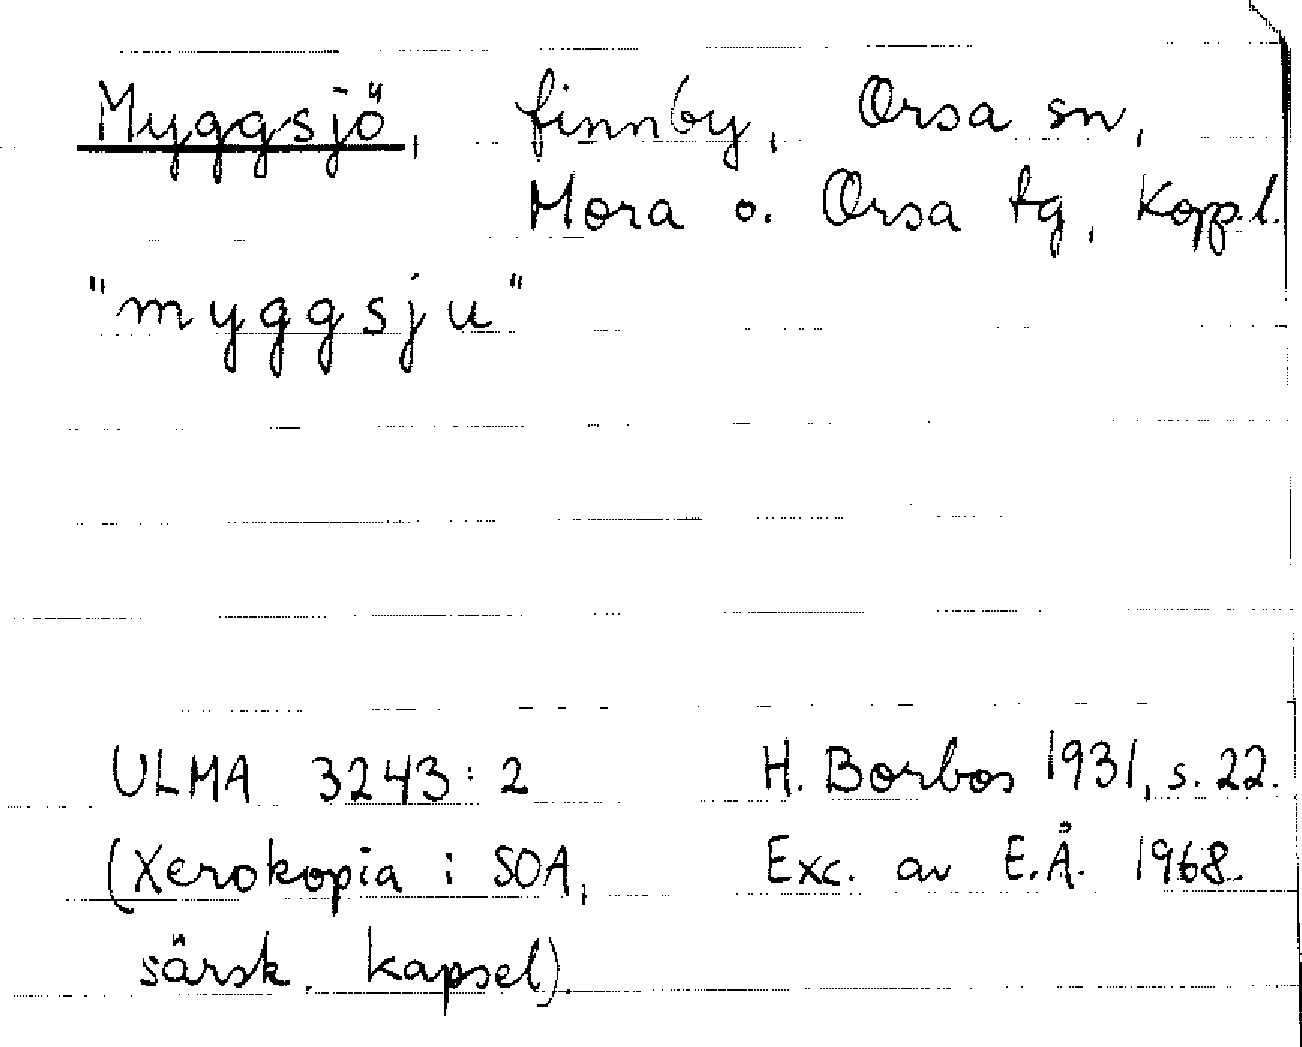 Myggsjö, finnby, Orsa sn,
Mora o. Orsa tg, Kopp.l.
"myggsju"
ULMA 3243:2 H. Borbos 1931, s. 22.
(Xerokopia i SOA, Exc. av E.Å. 1968.
särsk. kapsel).